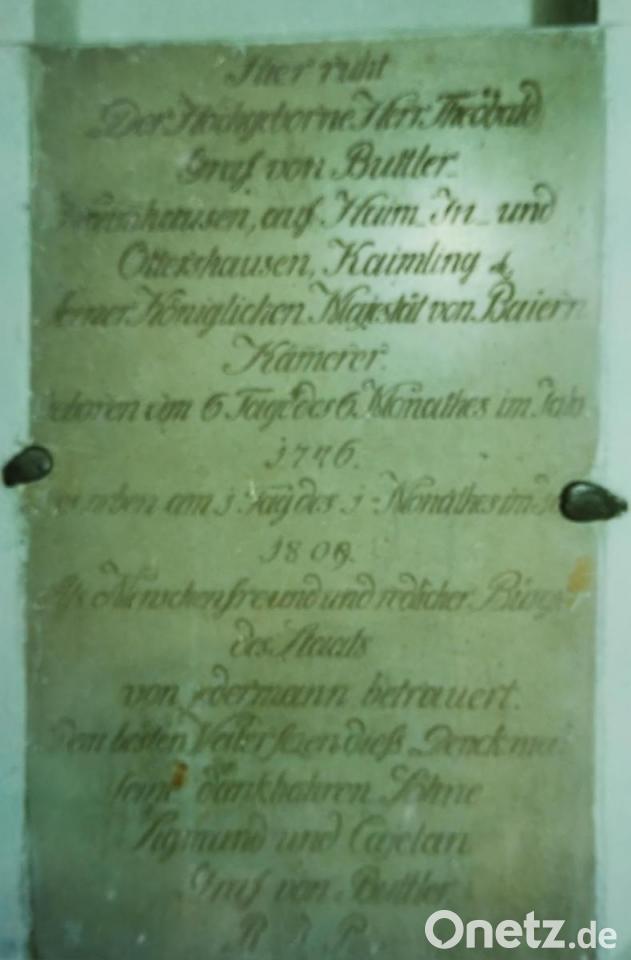 Hier ruht
Der Hochgeborne Herr Theobald
Graf von Buttler
auf Haim In und
Ottershausen, Kaimling
Königlichen Majestät von Baiern
Kämerer.
am 6 Tage des 6 Monathes im Jah
1746.
am 1 Tag des 1 Monathes im
1809.
Als Menschenfreund und redlicher Bürger
des Staats
von jedermann betrauert.
Dem besten Vater sezen dieß Denckmal
seine dankbahren Söhne
Sigmund und Cajetan
Graf von Buttler
R. I. P.
Onetz.de